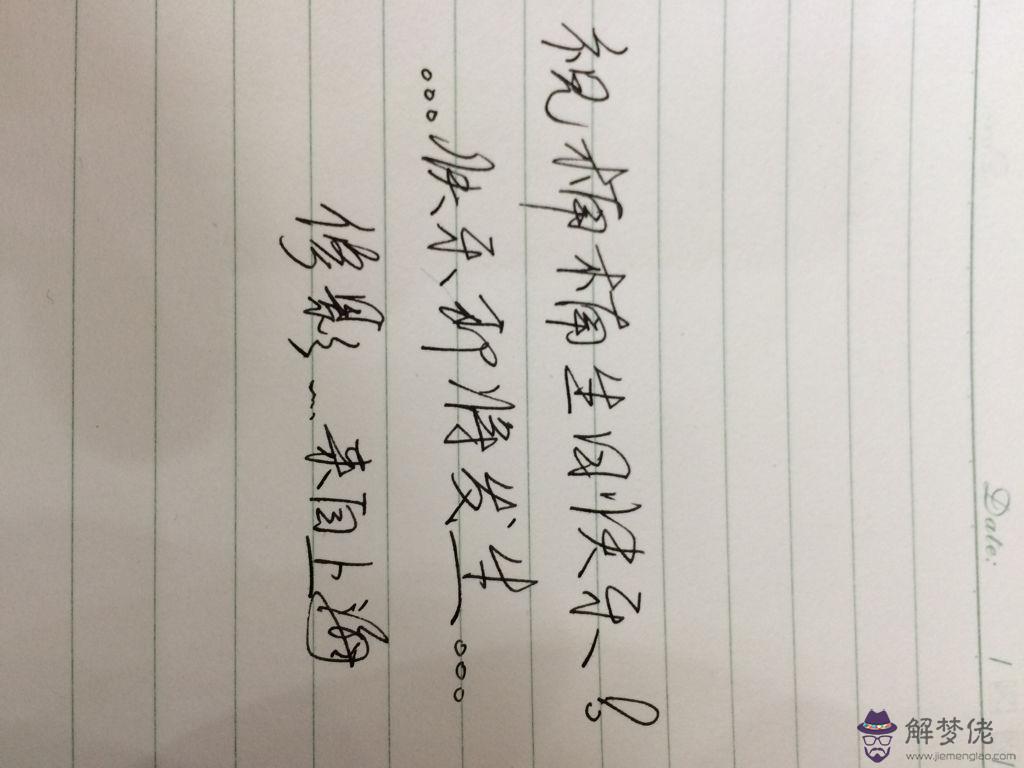 祝楠楠生日快乐!
...快乐即将发生...
修影...来自上海
Date:
解梦佬
www.jiemenglao.com